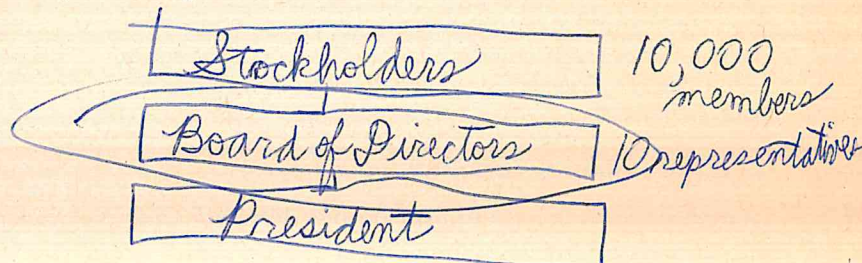 Stockholders 10,000
members
Board of Directors 10 representatives
President